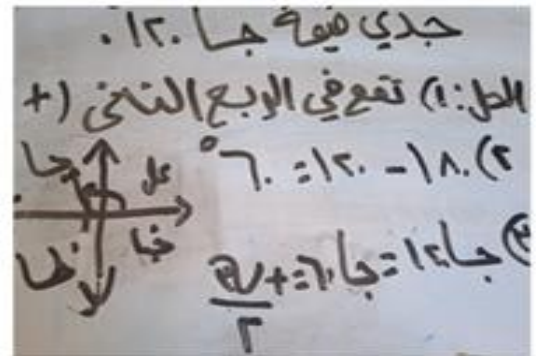 جدي قيمة جا ١٢٠°
الحل: ١) تقع في الربع الثاني (+
٢) ١٨٠ - ١٢٠ = ٦٠°
٣) جا ١٢٠ = جا ٦٠ = + √٣/٢
جا
كل
ظا
جتا